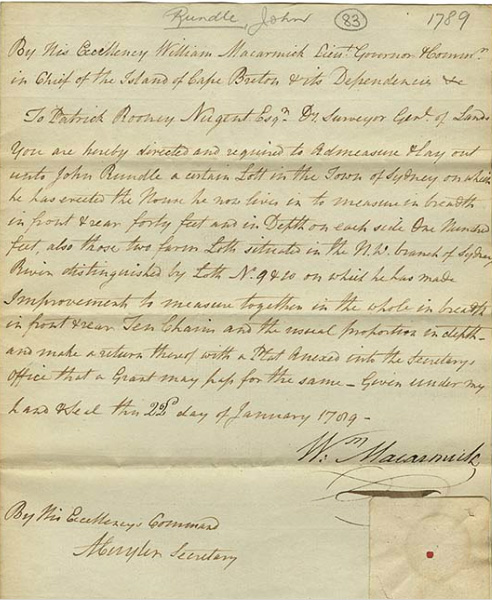 Rundle, John 83 1789
By His Excellency William Macarmick Lieut. Governor & Comm.r
in Chief of the Island of Cape Breton & its Dependencies &c
To Patrick Rooney Nugent Esq.r Dy. Surveyor Genl. of Lands
You are hereby directed and required to Admeasure & lay out
unto John Rundle a certain Lott in the Town of Sydney on which
he has erected the House he now lives in to measure in breadth
in front & rear forty feet and in Depth on each side One Hundred
feet, also those two farm Lotts situated in the N.W. branch of Sydney
River distinguished by Lotts No. 9 & 10 on which he has made
Improvements to measure together in the whole in breadth
in front & rear Ten Chains and the usual proportion in depth -
and make a return thereof with a Plot Anexed into the Secretarys
Office that a Grant may pass for the same - Given under my
hand & Seal this 22d day of January 1789 -
Wm Macarmick
By His Excellencys Command
Secretary